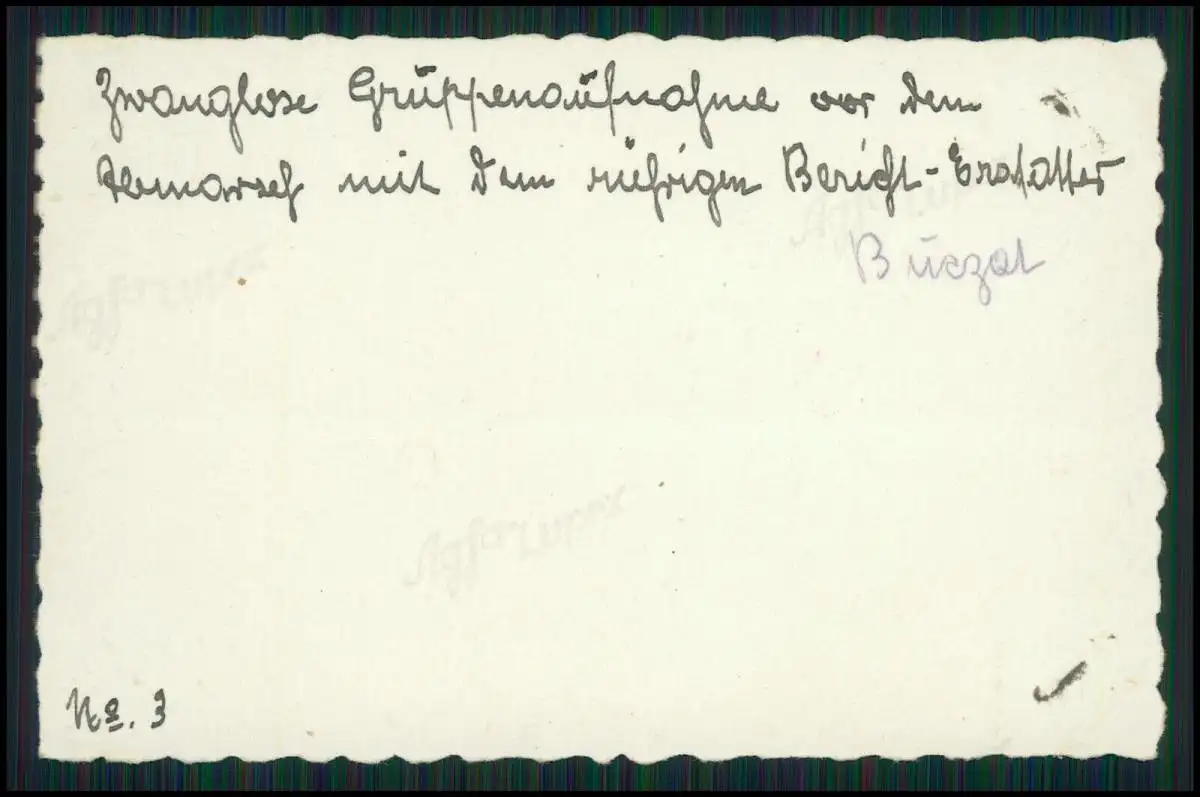 Zwanglose Gruppenaufnahme vor dem
Abmarsch mit dem rührigen Bericht-Erstatter
Buczat
Agfa Lupex
Agfa Lupex
Agfa Lupex
No. 3